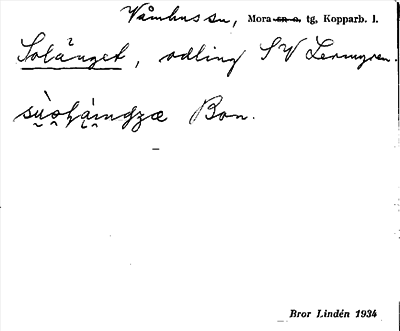 Våmhus sn, Mora sn o. tg, Kopparb. l.
Solänget, odling SV Lermyren.
Bon.
Bror Lindén 1934